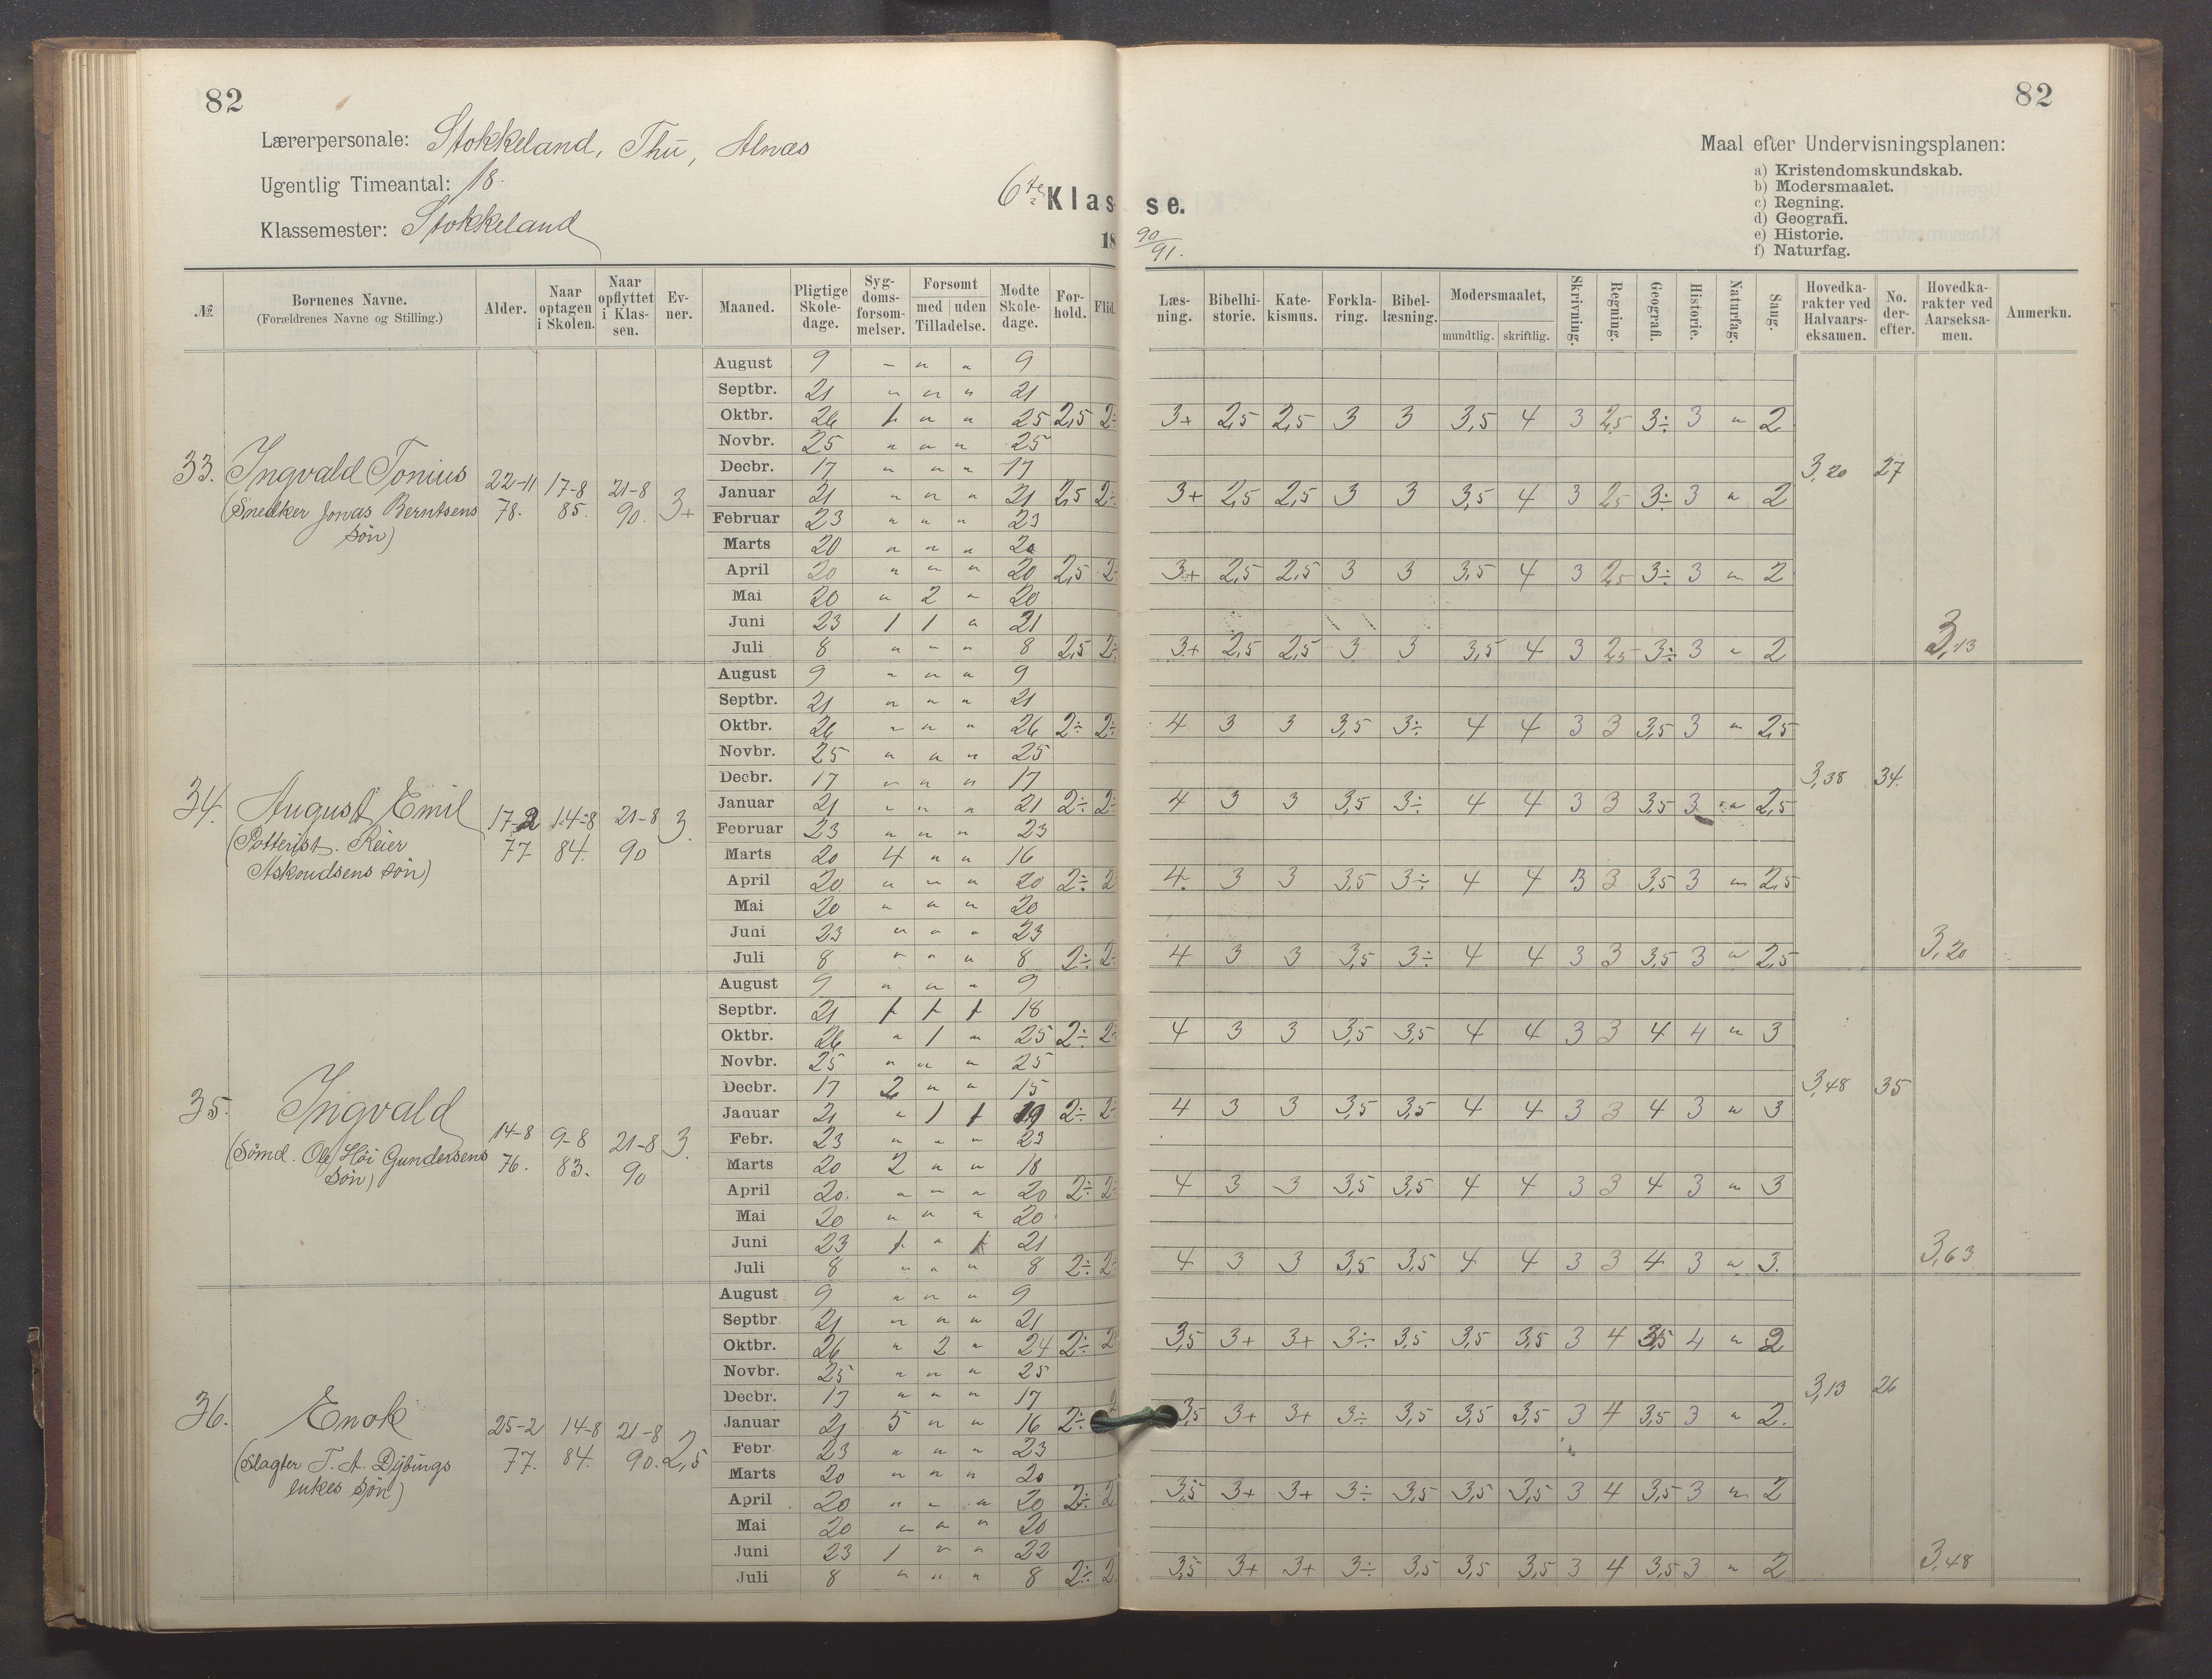 82
82
Lærerpersonale: Stokkeland, Thu, Alnæs
Ugentlig Timeantal: 18.
Klassemester: Stokkeland
6te Klasse.
18 90/91.
Maal efter Undervisningsplanen:
a) Kristendomskundskab.
b) Modersmaalet.
c) Regning.
d) Geografi.
e) Historie.
f) Naturfag.
№ Børnenes Navne. (Forældrenes Navne og Stilling.) Alder. Naar optagen i Skolen. Naar opflyttet i Klassen. Evner. Maaned. Pligtige Skoledage. Sygdomsforsømmelser. Forsømt med uden Tilladelse. Mødte Skoledage. Forhold. Flid. Læsning. Bibelhistorie. Katekismus. Forklaring. Bibellæsning. Modersmaalet, mundtlig. skriftlig. Skrivning. Regning. Geografi. Historie. Naturfag. Sang. Hovedkarakter ved Halvaarseksamen. No. derefter. Hovedkarakter ved Aarseksamen. Anmerkn.
33. Ingvald Tonius
(Snedker Jonas Berntsens
søn)
22-11 78. 17-8 85. 21-8 90. 3+
August 9 " " " 9
Septbr. 21 " " " 21
Oktbr. 26 1 " " 25 2,5 2÷ 3+ 2,5 2,5 3 3 3,5 4 3 2,5 3÷ 3 " 2
Novbr. 25 " " " 25
Decbr. 17 " " " 17 3,20 27
Januar 21 " " " 21 2,5 2÷ 3+ 2,5 2,5 3 3 3,5 4 3 2,5 3÷ 3 " 2
Februar 23 " " " 23
Marts 20 " " " 20
April 20 " " " 20 2,5 2÷ 3+ 2,5 2,5 3 3 3,5 4 3 2,5 3÷ 3 " 2
Mai 20 " 2 " 20
Juni 23 1 1 " 21
Juli 8 " " " 8 2,5 2÷ 3+ 2,5 2,5 3 3 3,5 4 3 2,5 3÷ 3 " 2 3,13
34. August Emil
(Potterist. Reier
Askoudsens søn)
17-2 77. 14-8 84. 21-8 90 3.
August 9 " " " 9
Septbr. 21 " " " 21
Oktbr. 26 " " " 26 2÷ 2÷ 4 3 3 3,5 3÷ 4 4 3 3 3,5 3 " 2,5
Novbr. 25 " " " 25
Decbr. 17 " " " 17 3,38 34.
Januar 21 " " " 21 2÷ 2÷ 4 3 3 3,5 3÷ 4 4 3 3 3,5 3 " 2,5
Februar 23 " " " 23
Marts 20 4 " " 16
April 20 " " " 20 2÷ 2 4 3 3 3,5 3÷ 4 4 3 3 3,5 3 " 2,5
Mai 20 " " " 20
Juni 23 " " " 23
Juli 8 " " " 8 2÷ 2÷ 4 3 3 3,5 3÷ 4 4 3 3 3,5 3 " 2,5 3,20
35. Ingvald
(Sömd. Ole Høi Gundersens
søn)
14-8 76. 9-8 83. 21-8 90 3.
August 9 " " " 9
Septbr. 21 1 1 1 18
Oktbr. 26 " 1 " 25 2÷ 2÷ 4 3 3 3,5 3,5 4 4 3 3 4 4 " 3
Novbr. 25 " " " 25
Decbr. 17 2 " " 15 3,48 35
Januar 21 " 1 1 19 2÷ 2÷ 4 3 3 3,5 3,5 4 4 3 3 4 3 " 3
Febr. 23 " " " 23
Marts 20 2 " " 18
April 20 " " " 20 2÷ 2÷ 4 3 3 3,5 3,5 4 4 3 3 4 3 " 3
Mai 20 " " " 20
Juni 23 1 " 1 21
Juli 8 " " " 8 2÷ 2÷ 4 3 3 3,5 3,5 4 4 3 3 4 3 " 3. 3,63
36. Enok
(Slagter T. A. Dybings
enkes søn)
25-2 77. 14-8 84. 21-8 90. 2,5
August 9 " " " 9
Septbr 21 " " " 21
Oktbr. 26 " 2 " 24 2÷ 2 3,5 3+ 3+ 3÷ 3,5 3,5 3,5 3 4 3,5 4 " 2
Novbr. 25 " " " 25
Decbr. 17 " " " 17 3,13 26
Januar 21 5 " " 16 2÷ 3,5 3+ 3+ 3÷ 3,5 3,5 3,5 3 4 3,5 3 " 2.
Febr 23 " " " 23
Marts 20 " " " 20
April 20 " " " 20 2÷ 2 3,5 3+ 3+ 3÷ 3,5 3,5 3,5 3 4 3,5 3 " 2
Mai 20 " " " 20
Juni 23 1 " " 22
Juli 8 " " " 8 2÷ 2 3,5 3+ 3+ 3÷ 3,5 3,5 3,5 3 4 3,5 3 " 2 3,48